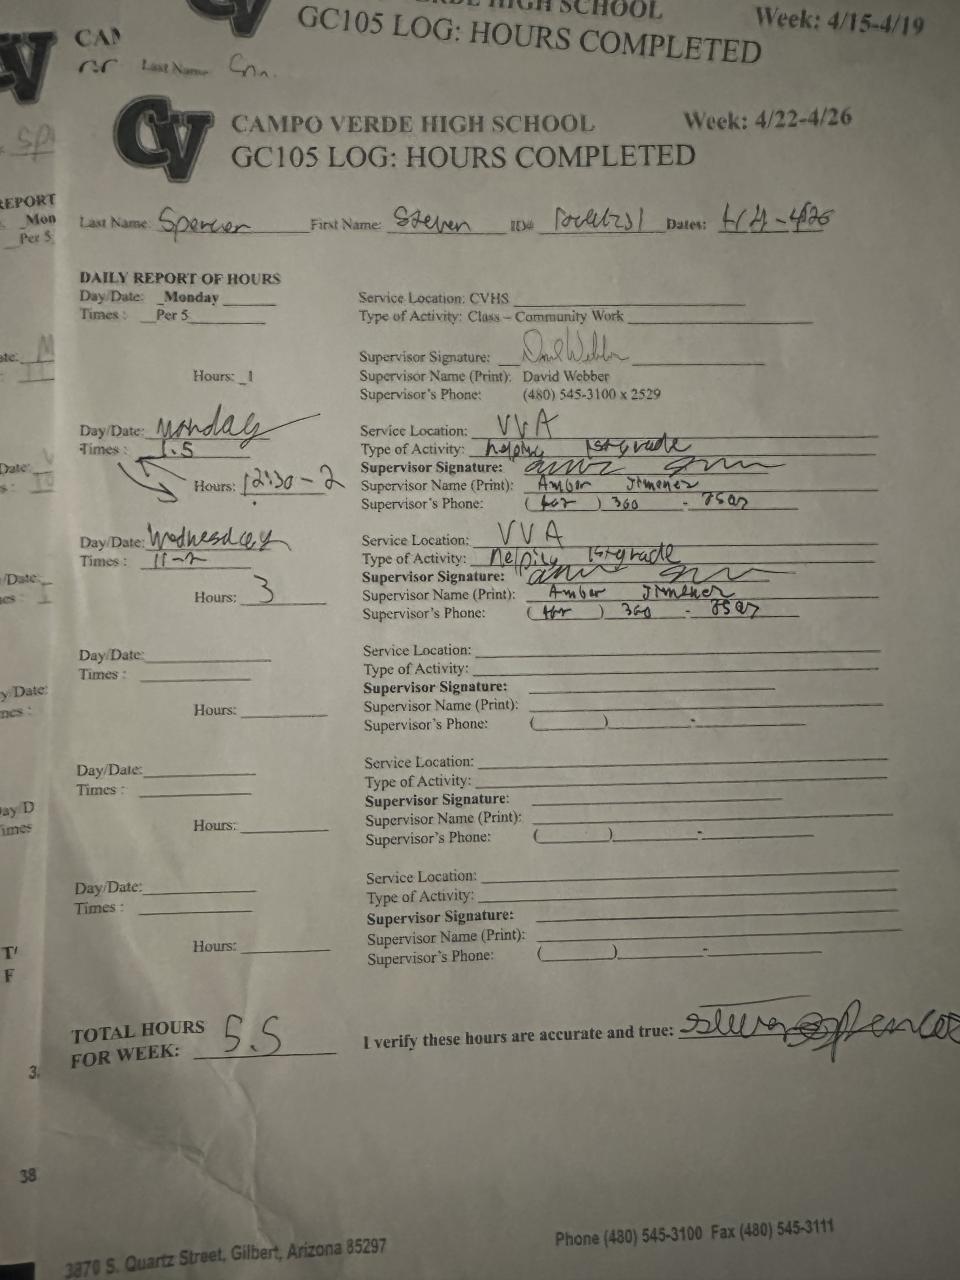 HIGH SCHOOL
Week: 4/15-4/19
GC105 LOG: HOURS COMPLETED
CV
Last Name
CV
CAMPO VERDE HIGH SCHOOL
Week: 4/22-4/26
GC105 LOG: HOURS COMPLETED
Last Name: Spencer First Name: Steven ID# Dates:
DAILY REPORT OF HOURS
Day/Date: Monday
Service Location: CVHS
Times : Per 5
Type of Activity: Class – Community Work
Supervisor Signature: David Webber
Hours: 1
Supervisor Name (Print): David Webber
Supervisor's Phone: (480) 545-3100 x 2529
Day/Date: Monday
Service Location: VVA
Times : 1.5
Type of Activity: helping 1st grade
Supervisor Signature:
Hours: 12:30 - 2
Supervisor Name (Print): Amber Jimenez
Supervisor's Phone: ( ) 360 -
Day/Date: Wednesday
Service Location: VVA
Times : 11-2
Type of Activity: helping 1st grade
Supervisor Signature:
Hours: 3
Supervisor Name (Print): Amber Jimenez
Supervisor's Phone: ( ) 360 -
Day/Date:
Service Location:
Times :
Type of Activity:
Supervisor Signature:
Hours:
Supervisor Name (Print):
Supervisor's Phone: ( ) -
Day/Date:
Service Location:
Times :
Type of Activity:
Supervisor Signature:
Hours:
Supervisor Name (Print):
Supervisor's Phone: ( ) -
Day/Date:
Service Location:
Times :
Type of Activity:
Supervisor Signature:
Hours:
Supervisor Name (Print):
Supervisor's Phone: ( ) -
TOTAL HOURS
FOR WEEK: 5.5
I verify these hours are accurate and true: Steven Spencer
38
3870 S. Quartz Street, Gilbert, Arizona 85297
Phone (480) 545-3100 Fax (480) 545-3111